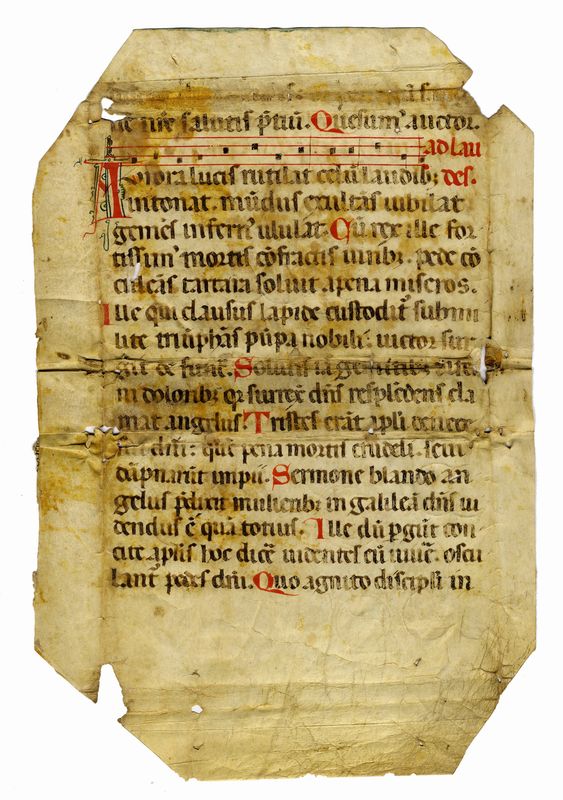 ne nr̄e salutis p̄tiū. Quesum⁹ auctor.
ad lau
Aurora lucis rutilat celū laudib; des.
intonat. mūdus exultās iubilat
gemēs infern⁹ ululat. Cū rex ille for
tissim⁹ mortis cōfractis uirib; pede cō
culcās tartara soluit a pena miseros.
Ille qui clausus lapide custodit̄ sub mi
lite triūphās pōpa nobili. uictor sur
git de funē. Solutis iā gemitib; et
in dolorib; qr surrex̄ dn̄s resplēdens cla
mat angelus. Tristes erāt apl̄i de nece
sui dn̄i: quē pena mortis crudeli. seui
dāpnarūt impii. Sermone blando an
gelus p̄dixit mulierib; in galileā dn̄s ui
dendus ē quā totius. Ille dū p̄gūt con
cite aplīs hoc dicē uidentes eū uiuē. oscu
lant̄ pedes dn̄i. Quo agnito discipl̄i in